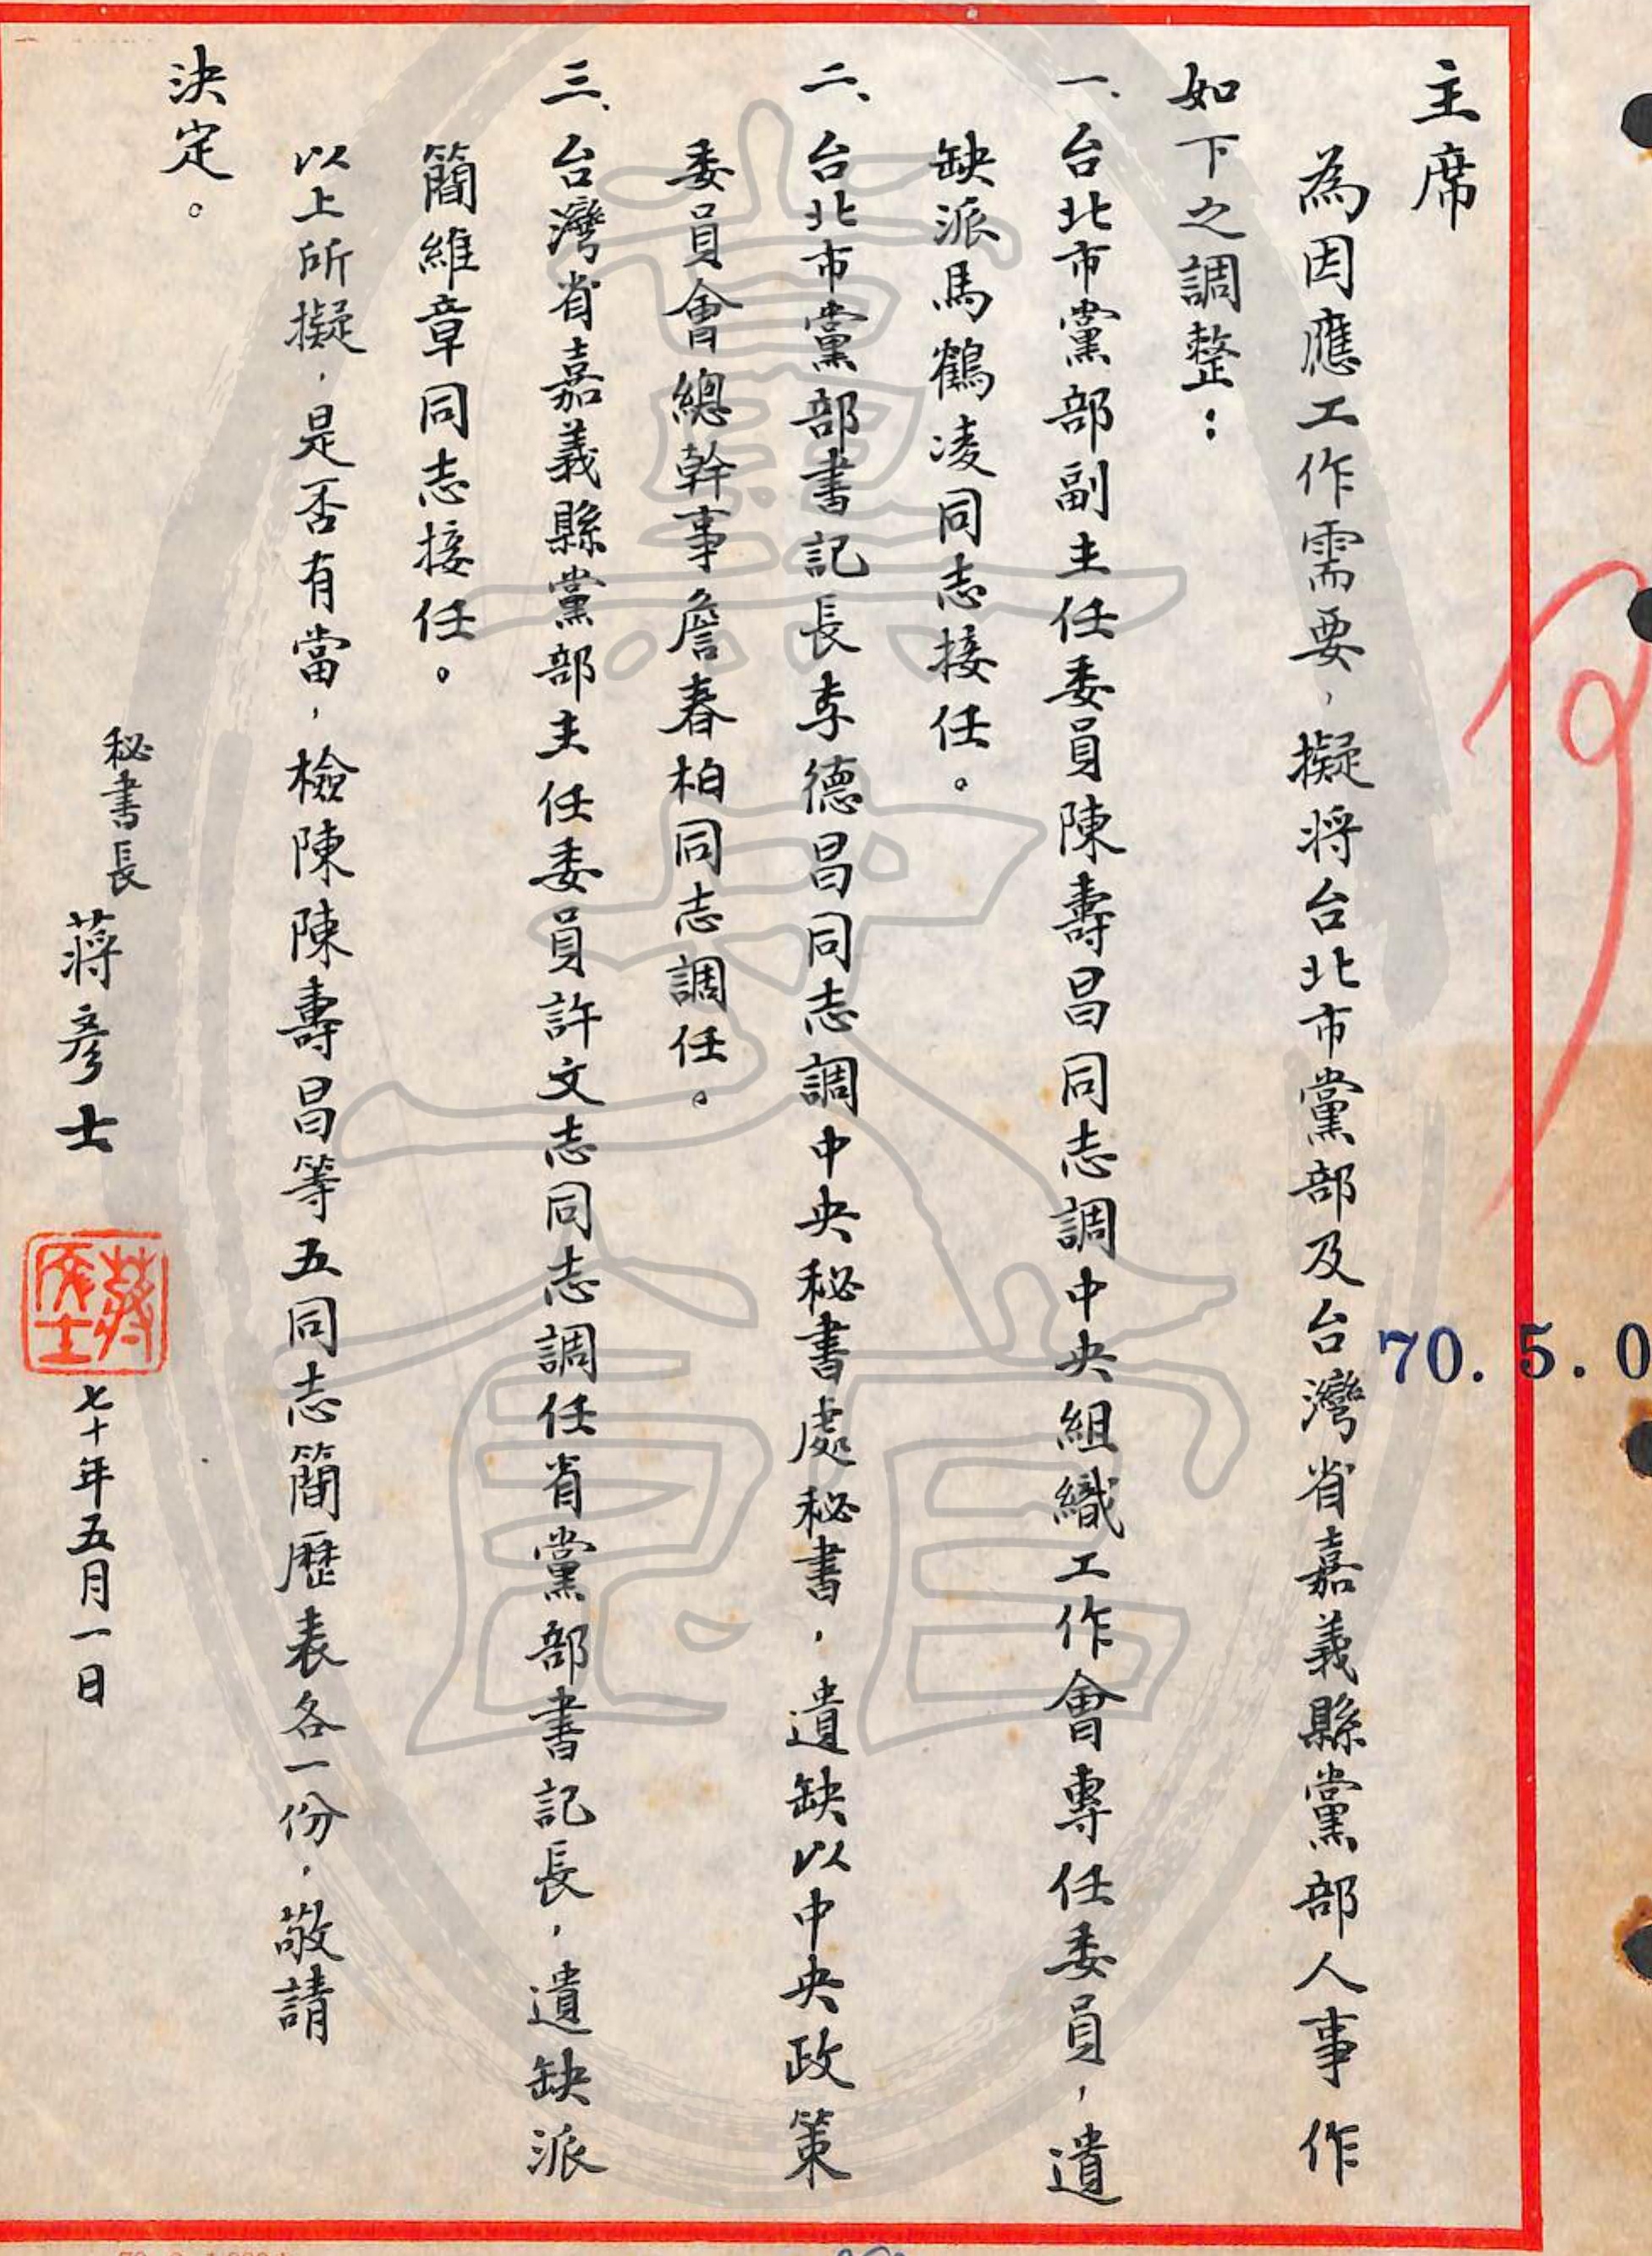 主席
為因應工作需要，擬將台北市黨部及台灣省嘉義縣黨部人事作
如下之調整：
一、台北市黨部副主任委員陳壽昌同志調中央組織工作會專任委員，遺
缺派馬鶴凌同志接任。
二、台北市黨部書記長李德昌同志調中央秘書處秘書，遺缺以中央政策
委員會總幹事詹春柏同志調任。
三、台灣省嘉義縣黨部主任委員許文志同志調任省黨部書記長，遺缺派
簡維章同志接任。
以上所擬，是否有當，檢陳陳壽昌等五同志簡歷表各一份，敬請
決定。
秘書長 蔣彥士
蔣彥士
七十年五月一日
70.5.0